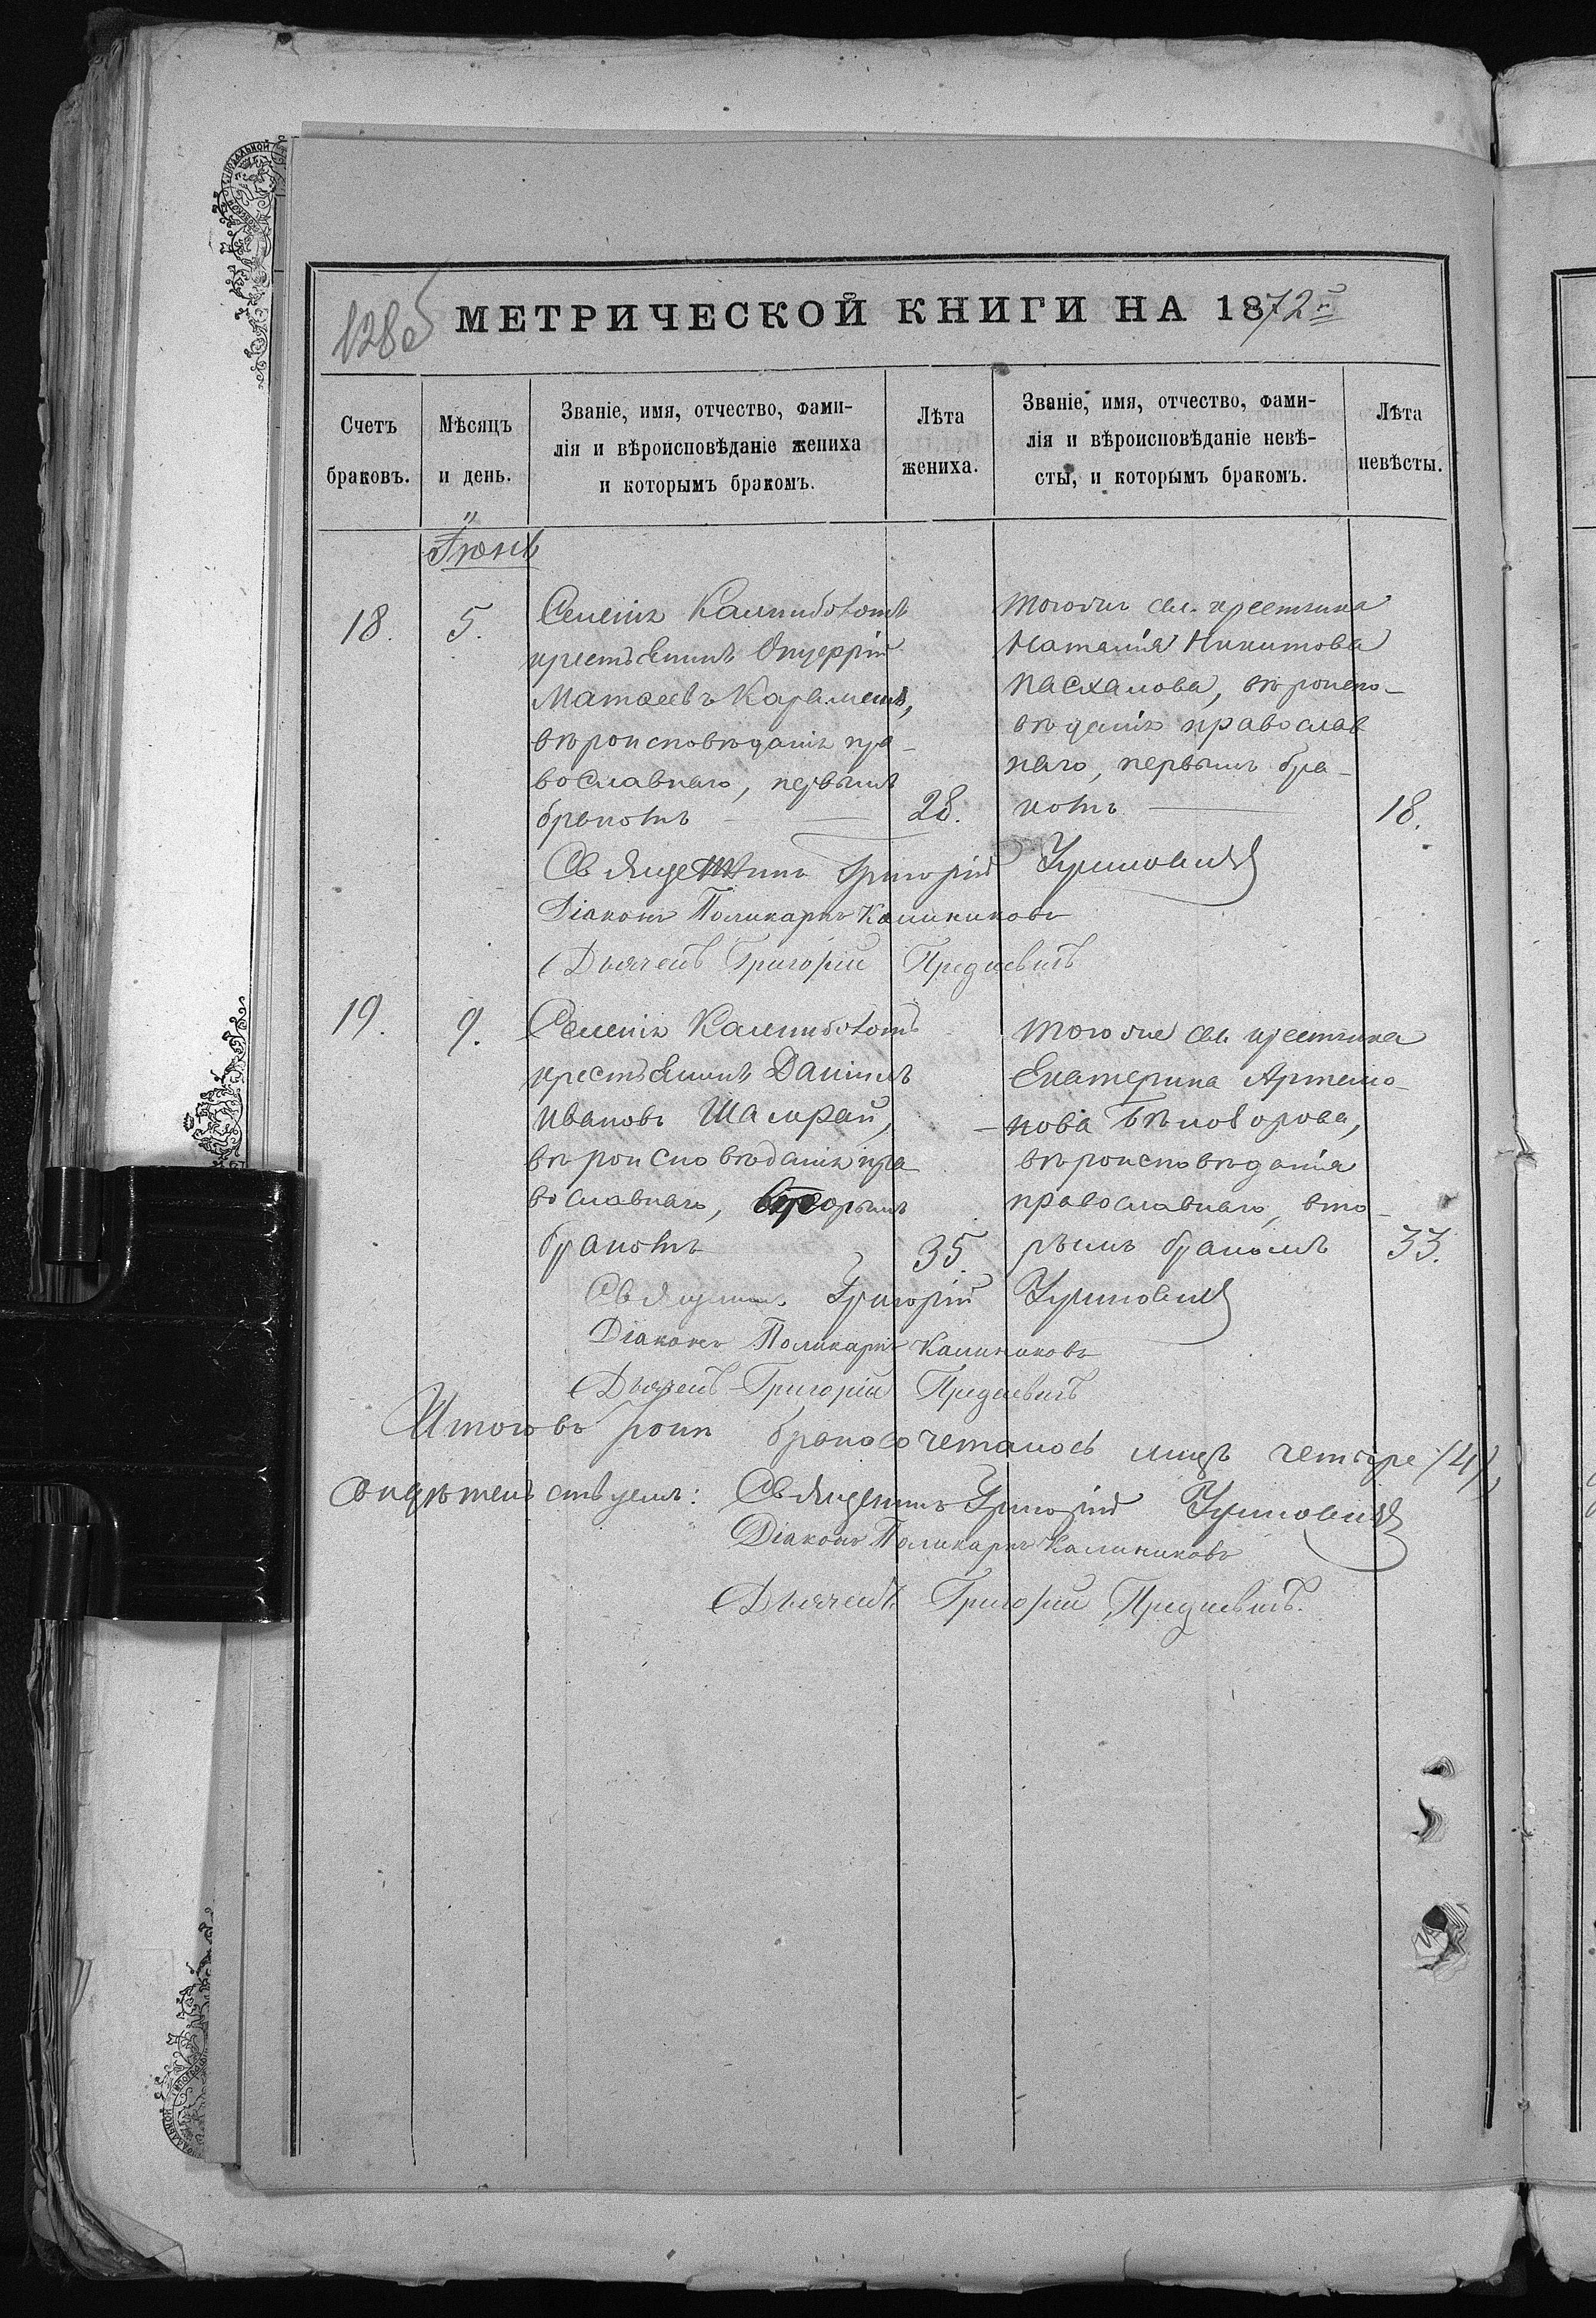 128об
МЕТРИЧЕСКОЙ КНИГИ НА 1872 г.
Счетъ браковъ.
Мѣсяцъ и день.
Званіе, имя, отчество, фами-
лія и вѣроисповѣданіе жениха
и которымъ бракомъ.
Лѣта жениха.
Званіе, имя, отчество, фами-
лія и вѣроисповѣданіе невѣ-
сты, и которымъ бракомъ.
Лѣта невѣсты.
Іюнь
18. 5.
Селенія
крестьянинъ Онуфрій
Матѳеевъ Караменъ,
вѣроисповѣданія пра-
вославнаго, первымъ
бракомъ 28.
тогоже сел. крестьянка
Наталія Никитова
Пасхалова, вѣроиспо-
вѣданія православ
наго, первымъ бра-
комъ 18.
Священникъ Григорій
Діаконъ Поликарпъ Калиниковъ
Дьячекъ Григорій
19. 9.
Селенія
крестьянинъ Даніилъ
Ивановъ Шамрай,
вѣроисповѣданія пра
вославнаго, вторымъ
бракомъ 35.
тогоже сел. крестьянка
Екатерина Артемо-
нова
вѣроисповѣданія
православнаго, вто-
рымъ бракомъ 33.
Священникъ Григорій
Діаконъ Поликарпъ Калиниковъ
Дьячекъ Григорій
Итого въ Іюнѣ бракосочеталось лицъ четыре (4),
Свидѣтельствуемъ: Священникъ Григорій
Діаконъ Поликарпъ Калиниковъ
Дьячекъ Григорій